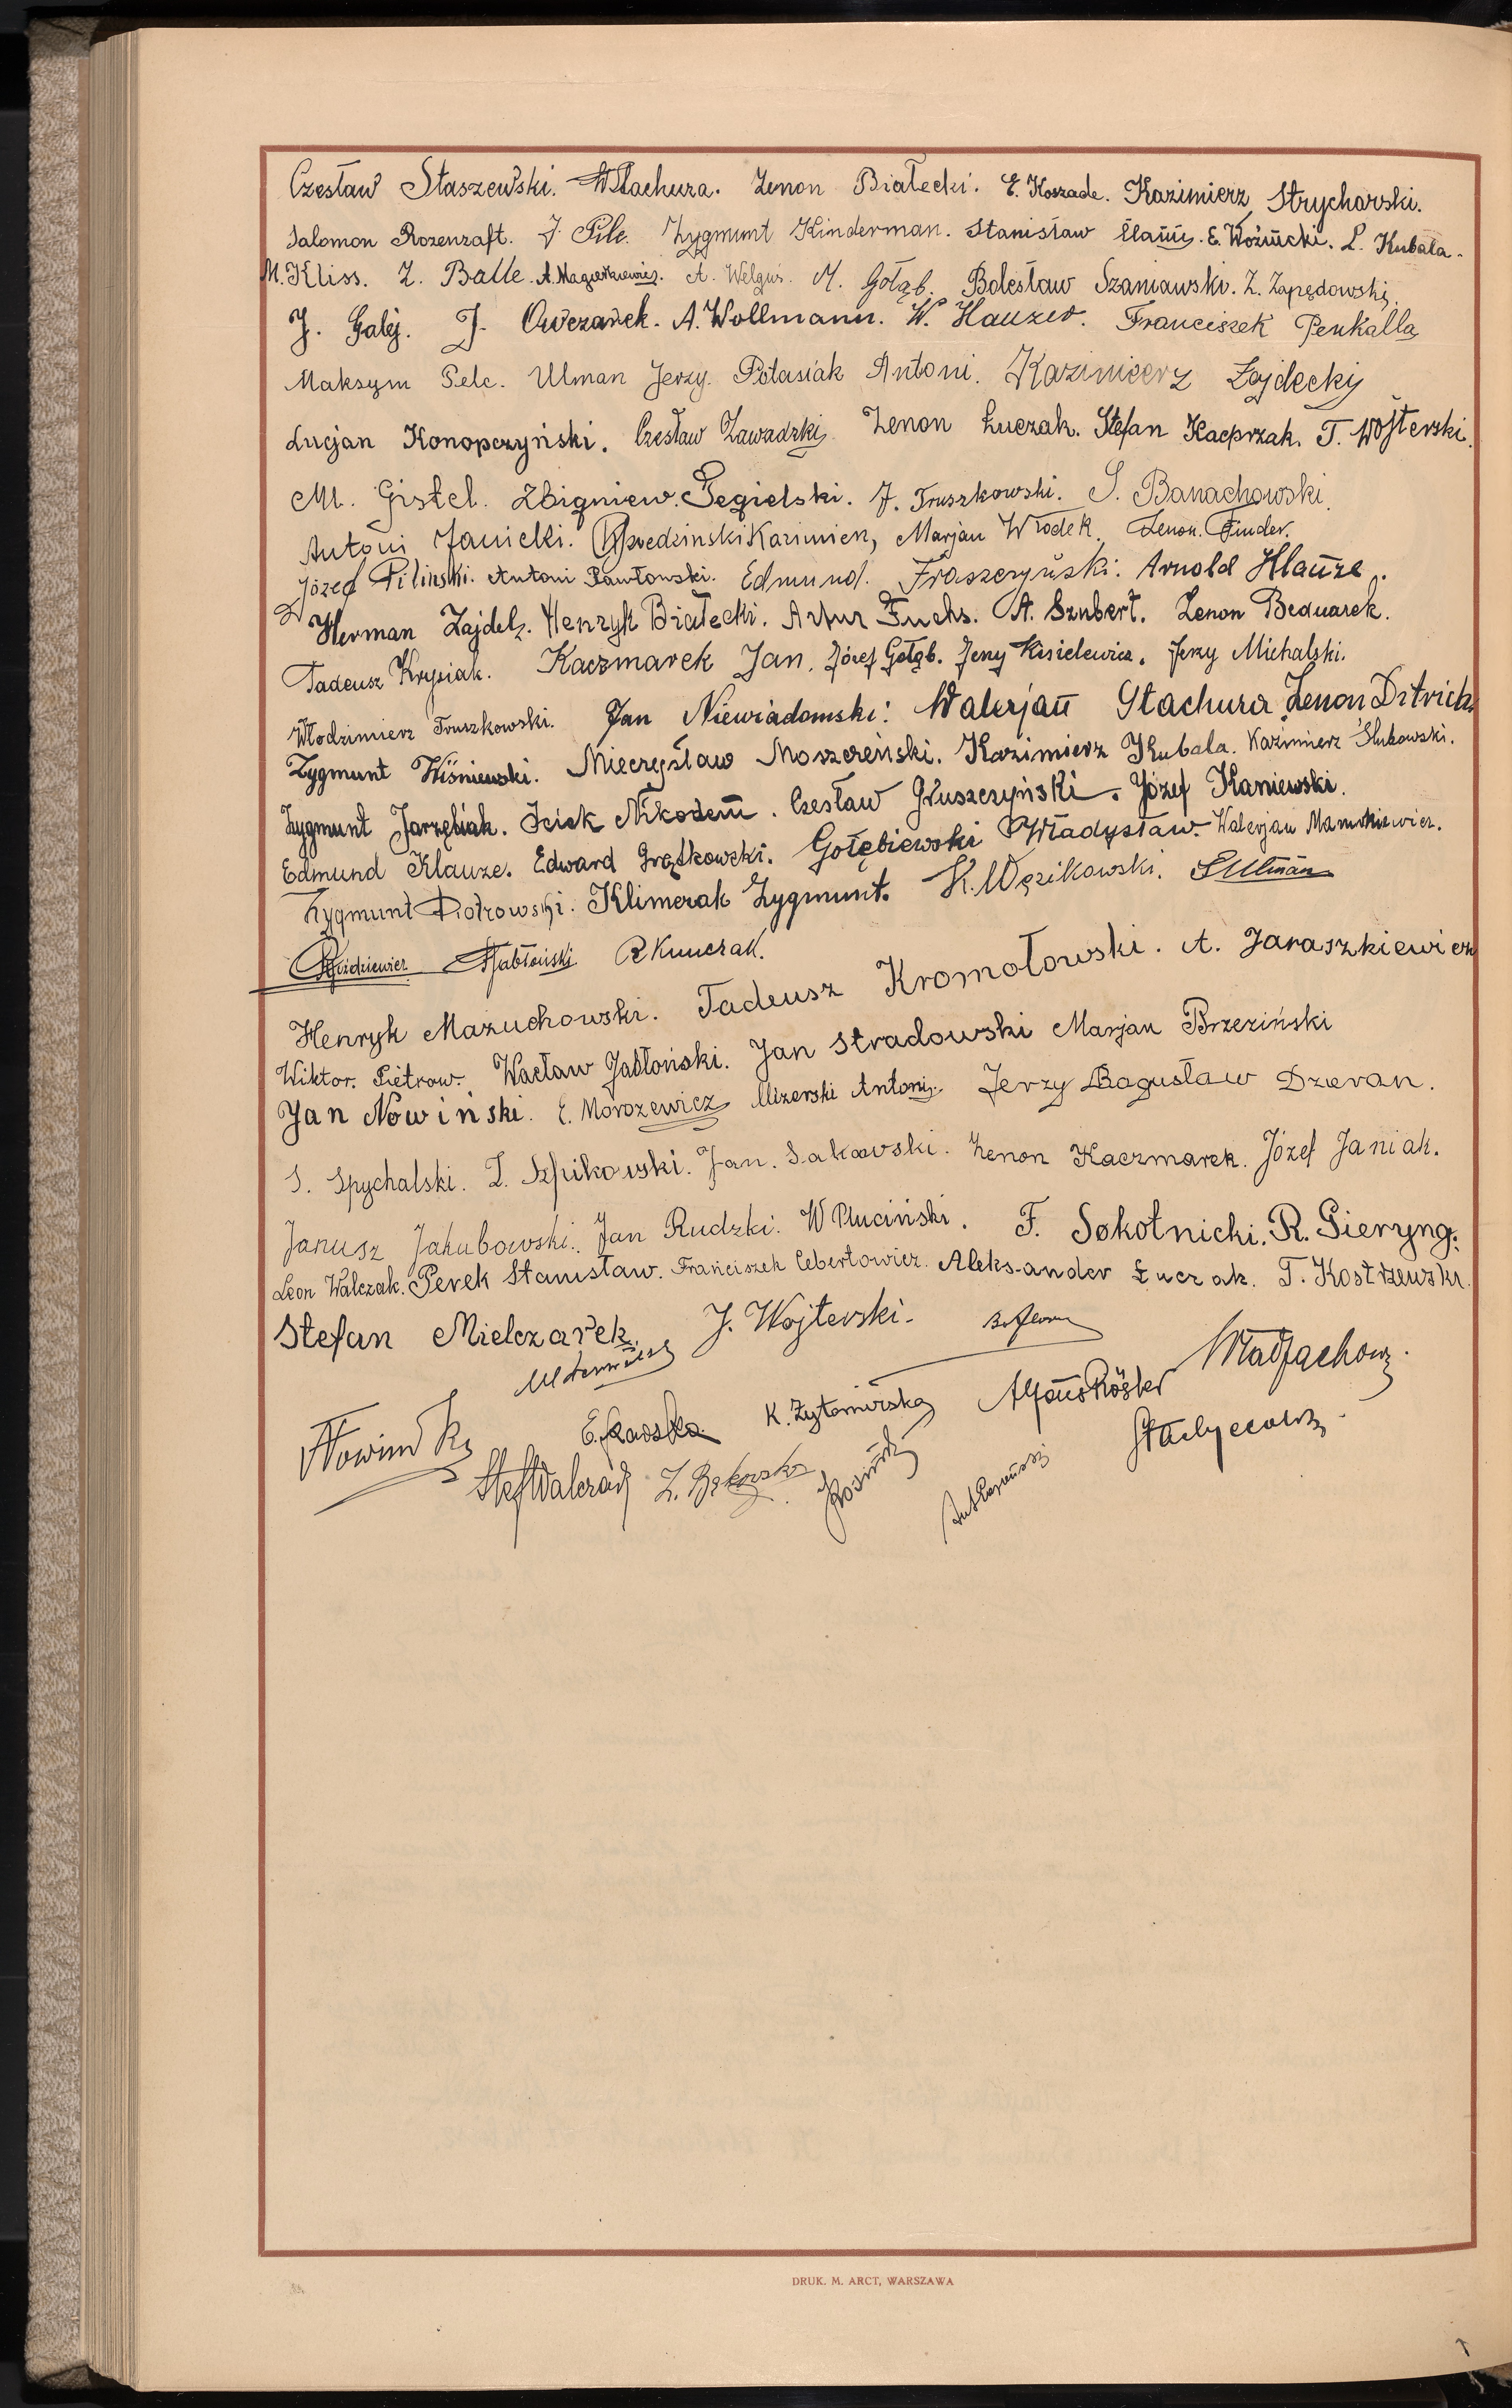 Czesław Staszewski. W Stachura. Zenon Białecki. E. Koszade. Kazimierz Strycharski.
Salomon Rozenzaft. J. Pilc. Zygmunt Kinderman. Stanisław E. Woźnicki. L. Kubala.
M. Kliss. Z. Balle. A. Magierkiewicz. A. Welgus. M. Gołąb. Bolesław Szaniawski. Z. Zapędowski.
J. Galej. J. Owczarek. A. Wollmann. W. Hauzer. Franciszek Penkalla
Maksym Pelc. Ulman Jerzy. Potasiak Antoni. Kazimierz Zajdecki
Lucjan Konopczyński. Czesław Zawadzki. Zenon Łuczak. Stefan Kacprzak. T. Wojterski.
M. Gistel. Zbigniew Cegielski. J. Truszkowski. S. Banachowski.
Antoni Janicki. Kazimierz, Marjan Włodek. Zenon. Finder.
Józef Piliński. Antoni Pawłowski. Edmund. Fraszczyński. Arnold Klauze.
Herman Zajdel. Henryk Białecki. Artur Fuchs. A. Szubert. Zenon Bednarek.
Tadeusz Krysiak. Kaczmarek Jan. Józef Gołąb. Jerzy Kisielewicz. Jerzy Michalski.
Włodzimierz Truszkowski. Jan Niewiadomski. Walerjan Stachura Zenon Ditrich.
Zygmunt Wiśniewski. Mieczysław Moszczeński. Kazimierz Kubala. Kazimierz Słubowski.
Zygmunt Jarzębiak. Icick Nikodem. Czesław Gruszczyński. Józef Kaniewski.
Edmund Klauze. Edward Grątkowski. Gołębiewski Władysław. Walerjan
Zygmunt Piotrowski. Klimczak Zygmunt. K. Węzikowski. S Ulman
Jabłoński R Kunczak.
Henryk Mazuchowski. Tadeusz Kromołowski. A. Jaraszkiewicz
Wiktor. Pietrow. Wacław Jabłoński. Jan Stradowski Marjan Brzeziński
Jan Nowiński. E. Morozewicz Mizerski Antoni. Jerzy Bogusław Dzeran.
S. Spychalski. Z. Szpikowski. Jan. Sakowski. Zenon Kaczmarek. Józef Janiak.
Janusz Jakubowski. Jan Rudzki. W Pluciński. F. Sokolnicki. R. Gieryng.
Leon Walczak. Perek Stanisław. Franciszek Cebertowicz. Aleksander Łuczak. T. Kostrzewski.
Stefan Mielczarek. J. Wojterski.
K. Żytomirska
Stef Walczak Z. Bąkowska
DRUK. M. ARCT, WARSZAWA